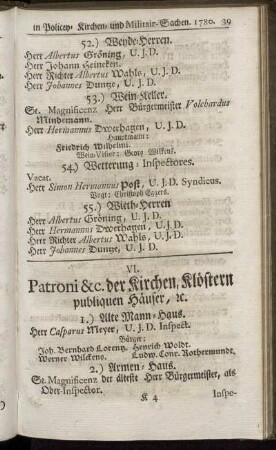 in Policey- Kirchen- und Militair-Sachen. 1780. 39
52.) Weyde-Herren.
Herr Albertus Gröning, U. J. D.
Herr Johann Heineken.
Herr Richter Albertus Wahls, U. J. D.
Herr Johannes Duntze, U. J. D.
53.) Wein-Keller.
Se. Magnificenz Herr Bürgermeister Volchardus
Mindemann.
Herr Hermannus Dwerhagen, U. J. D.
Hauptmann:
Friedrich Wilhelmi.
Wein-Visier: Georg Wilkens.
54.) Wetterung-Inspectores.
Vacat.
Herr Simon Hermannus Post, U. J. D. Syndicus.
Vogt: Christoph Eggers.
55.) Wieth-Herren
Herr Albertus Gröning, U. J. D.
Herr Hermannus Dwerhagen, U. J. D.
Herr Richter Albertus Wahls, U. J. D.
Herr Johannes Duntze, U. J. D.
VI.
Patroni &c. der Kirchen, Klöstern
publiquen Häuser, &c.
1.) Alte Mann-Haus.
Herr Casparus Meyer, U. J. D. Inspect.
Bürger:
Joh. Bernhard Lorentz. Henrich Woldt.
Werner Wilckens. Ludw. Conr. Rothermundt.
2.) Armen-Haus.
Se. Magnificenz der älteste Herr Bürgermeister, als
Ober-Inspector.
K 4 Inspe-